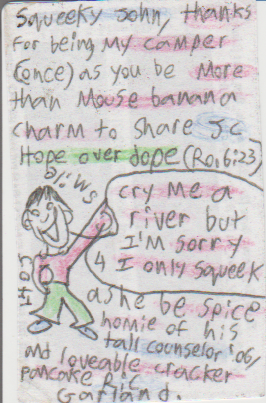 Squeeky John, thanks
for being my camper
(once) as you be More
than Mouse banana
charm to share J.C.
Hope over dope (Ro. 6:23)
bl: W5
cry me a
river but
I'm sorry
4 I only squeek
John
as he be spice
homie of his
tall counselor '06,
and loveable cracker
pancake R.C.
Garland.